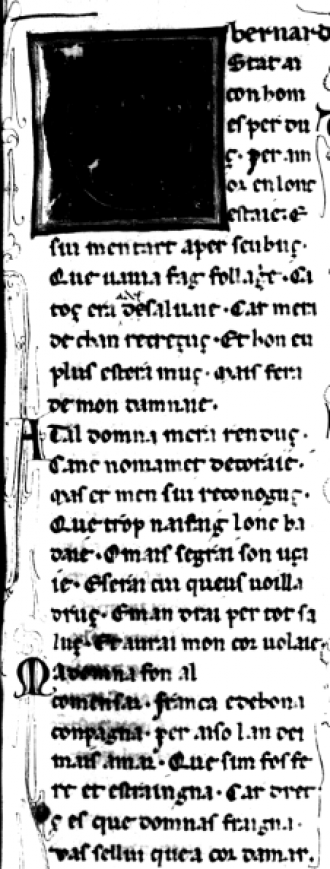 bernard
Stat ai
con hom
es per du
ç. per am
or en lonc
estaie. E
sui mentart aper seubuç.
Que uauia fag follage. Ca
toç era desaluaie. Car mera
de chan retreçuç. Et hon eu
plus estera muç. mais fera
de mon damnaie.
A Tal domna mera renduç.
Canc nomamet decoraie.
mas er men sui reconoguç.
Que trop nai faig lonc ba
daie. Omais segrai son usa
ie. Eserai cui queus uoilla
druç. Eman drai per tot sa
luç. Et aurai mon cor uolaie.
Madomna fon al
comensar. franca edebona
conpagna. per aiso lan dei
mais amar. Que sim fos fe
re et estraingna. Car drec
ç es que domnas fraigna.
vas sellui quea cor damar.